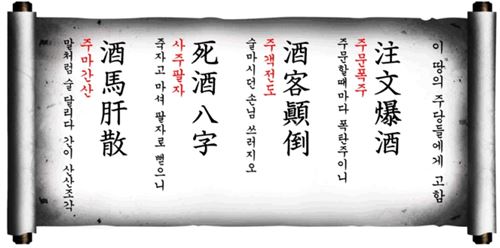 이 땅의 주당들에게 고함
注文爆酒
주문폭주
주문할때마다 폭탄주이니
酒客顚倒
주객전도
술마시던 손님 쓰러지오
死酒八字
사주팔자
죽자고 마셔 팔자로 뻗으니
酒馬肝散
주마간산
말처럼 술 달리다 간이 산산조각